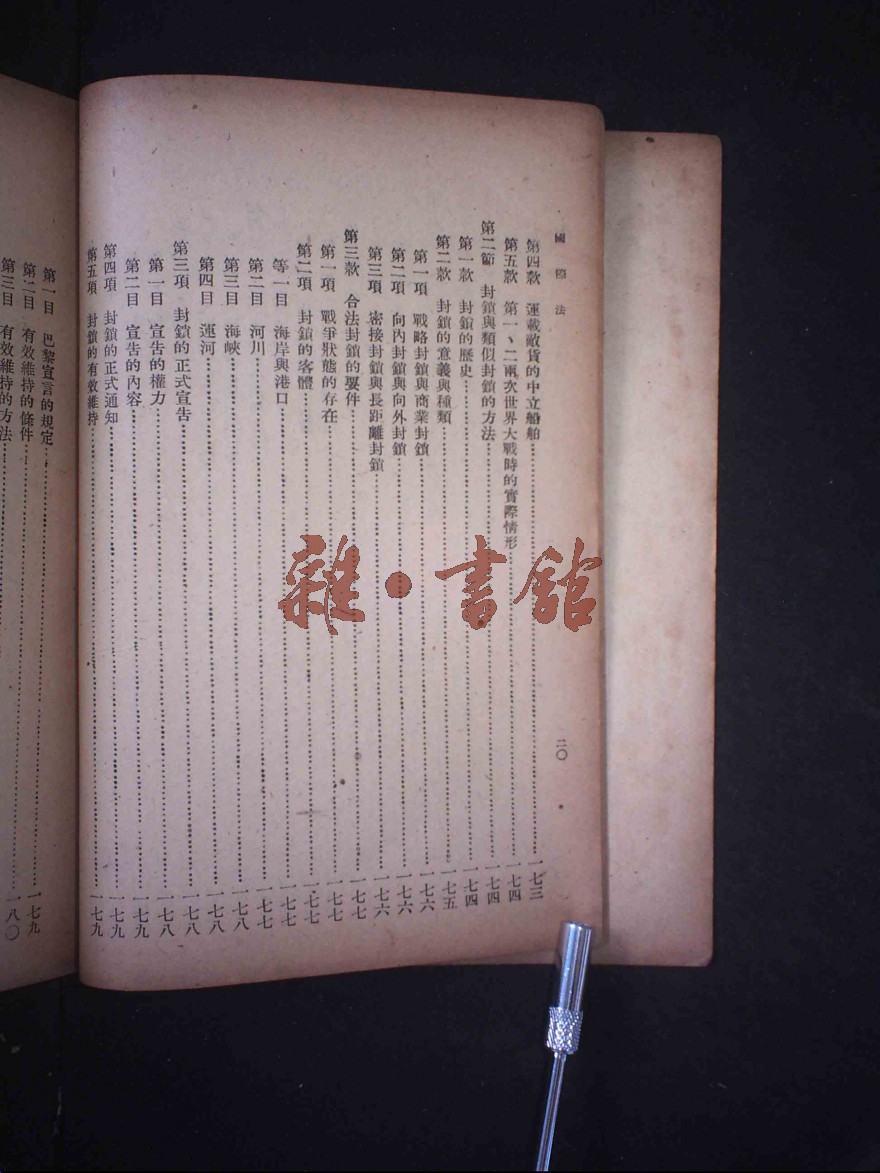 國際法
二〇
第四款 運載敵貨的中立船舶……一七三
第五款 第一、二兩次世界大戰時的實際情形……一七四
第二節 封鎖與類似封鎖的方法……一七四
第一款 封鎖的歷史……一七四
第二款 封鎖的意義與種類……一七五
第一項 戰略封鎖與商業封鎖……一七六
第二項 向內封鎖與向外封鎖……一七六
第三項 密接封鎖與長距離封鎖……一七六
第三款 合法封鎖的要件……一七七
第一項 戰爭狀態的存在……一七七
第二項 封鎖的客體……一七七
等一目 海岸與港口……一七七
第二目 河川……一七七
第三目 海峽……一七八
第四目 運河……一七八
第三項 封鎖的正式宣告……一七八
第一目 宣告的權力……一七八
第二目 宣告的內容……一七九
第四項 封鎖的正式通知……一七九
第五項 封鎖的有效維持……一七九
第一目 巴黎宣言的規定……一七九
第二目 有效維持的條件……
第三目 有效維持的方法……一八〇
雜·書館